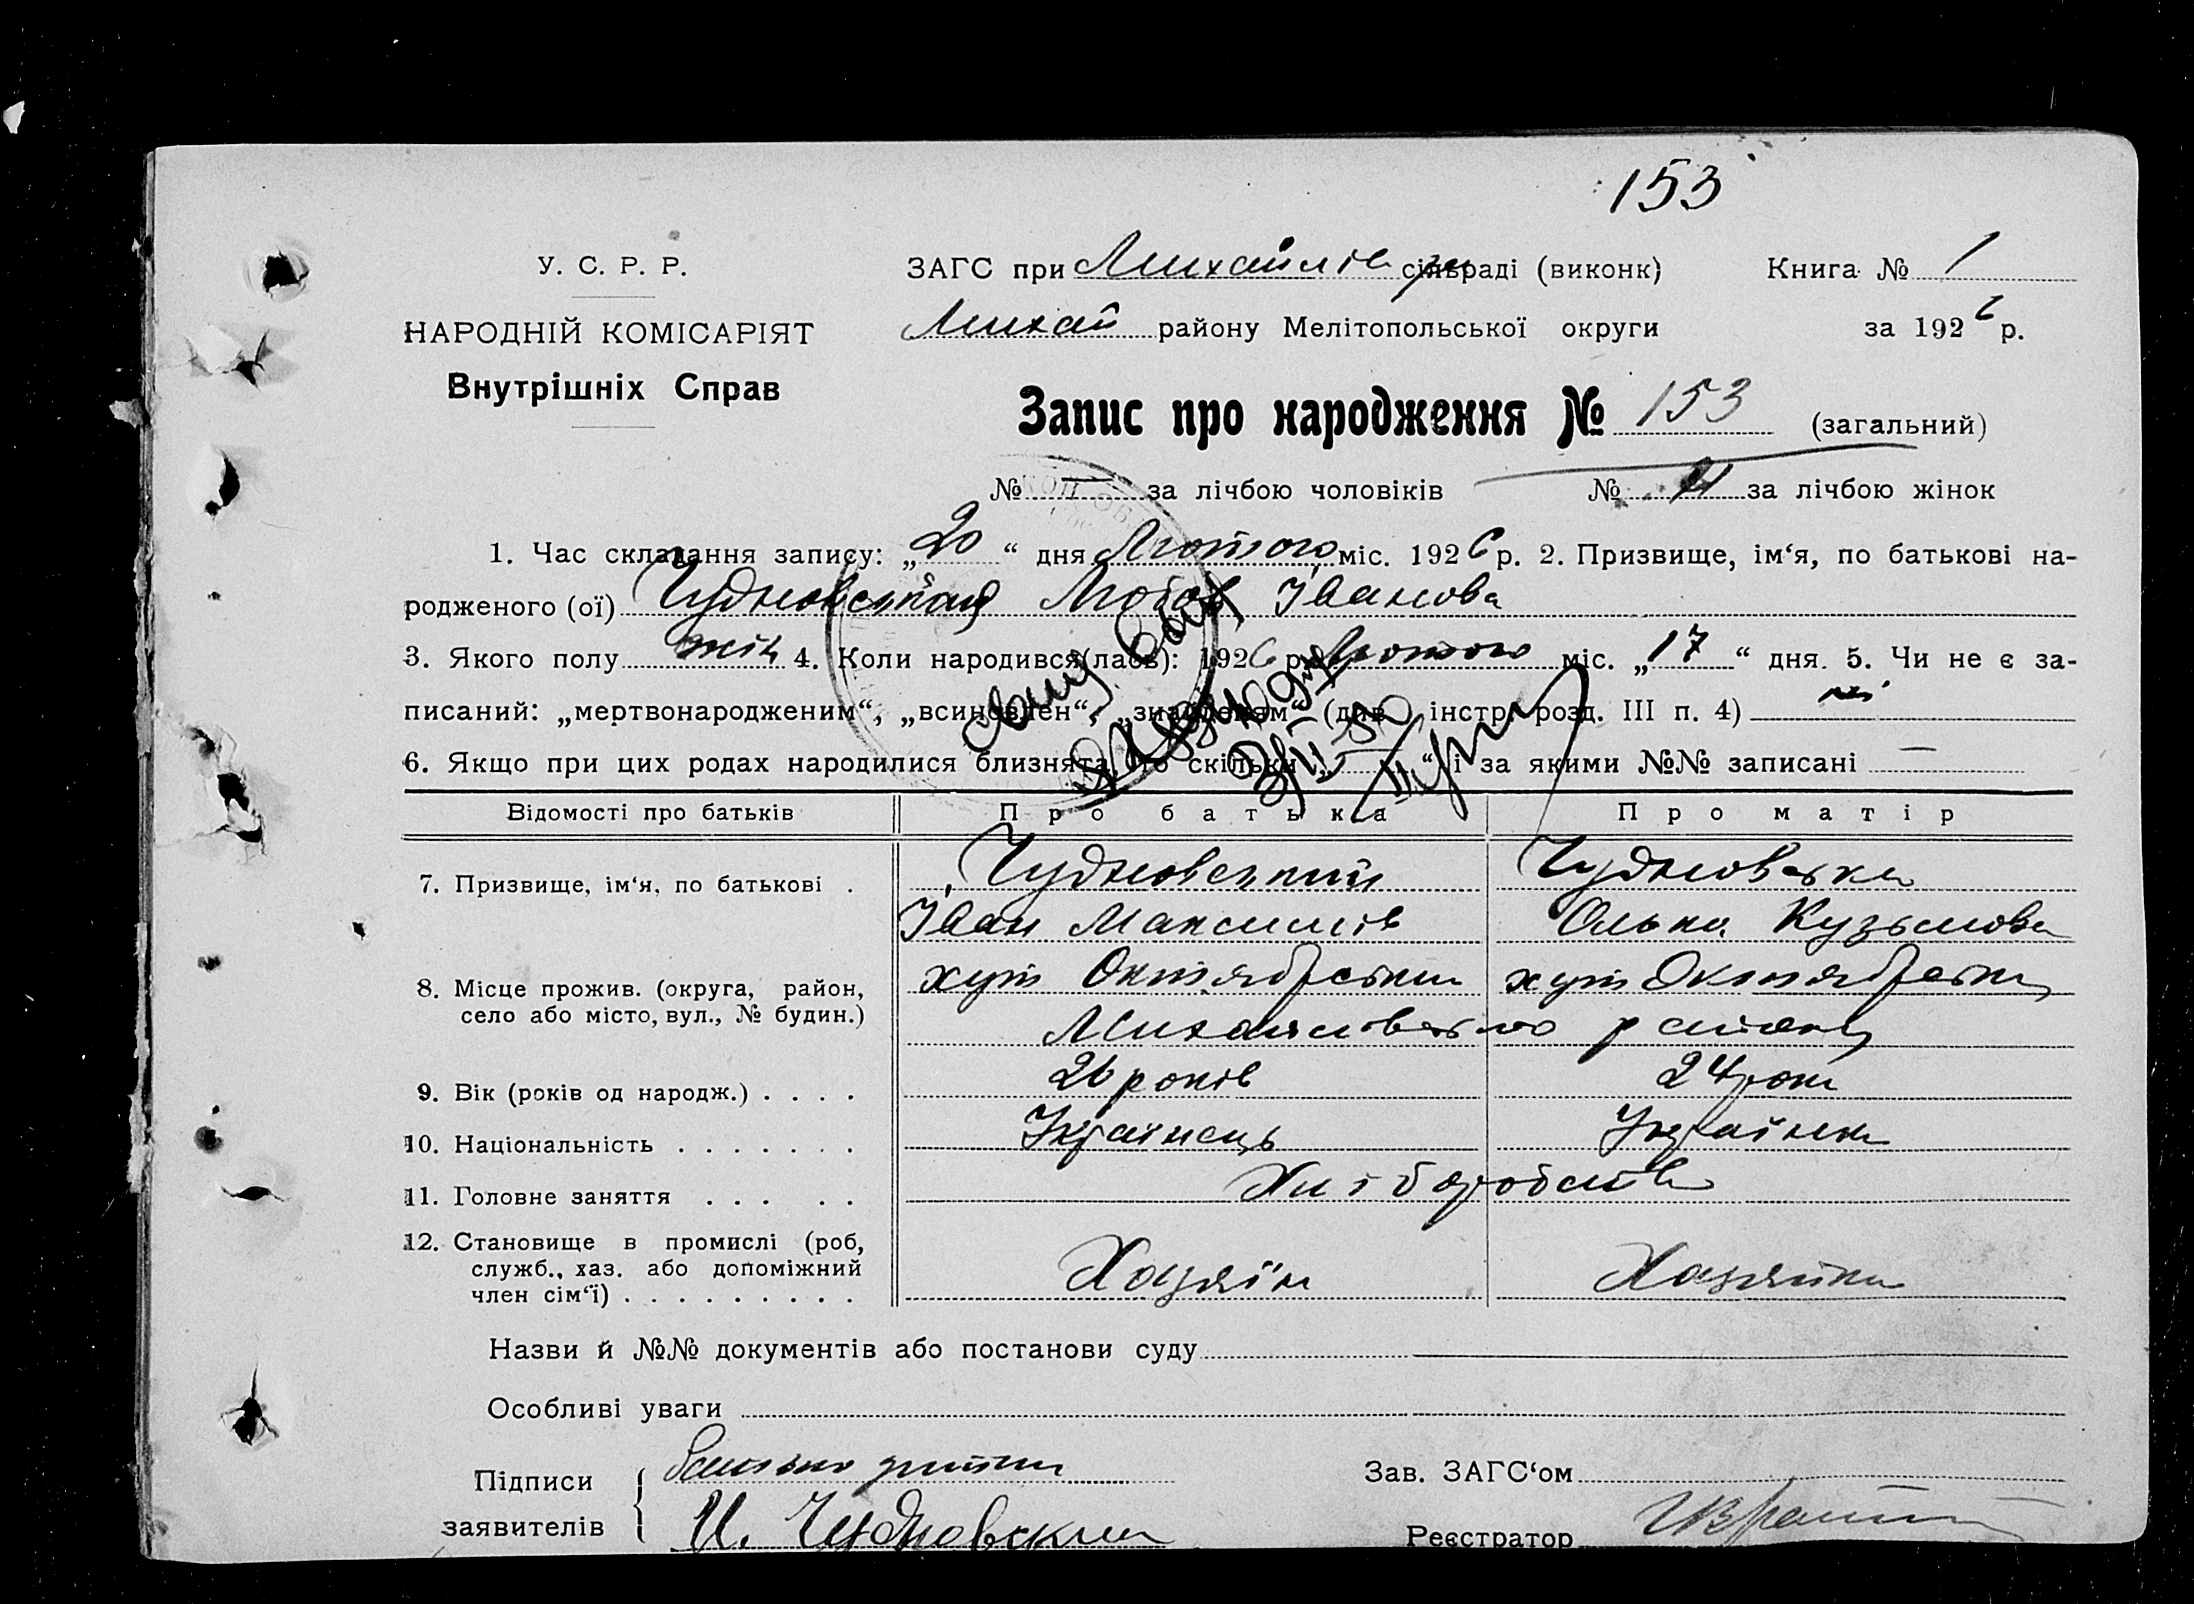 153
У. С. Р. Р.
ЗАГС при Михайлів сільраді (виконк)
Книга № 1
НАРОДНІЙ КОМІСАРІЯТ
Михай району Мелітопольської округи
за 1926 р.
Внутрішніх Справ
Запис про народження № 153 (загальний)
№ — за лічбою чоловіків № за лічбою жінок
1. Час складання запису: „20“ дня Лютого міс. 1926 р. 2. Призвище, ім‘я, по батькові на-
родженого (ої) Чудновська Любов Іванова
3. Якого полу жін 4. Коли народився(лась): 1926 р. Лютого міс. „17“ дня. 5. Чи не є за-
писаний: „мертвонародженим“, „всиновлен“, „знайденим“ (див. інстр. розд. III п. 4) ні
6. Якщо при цих родах народилися близнята, то скільки „—“ і за якими №№ записані —
Відомості про батьків
Про батька
Про матір
7. Призвище, ім‘я, по батькові .
Чудновський
Чудновська
Іван Максимів
Олька Кузьмова
8. Місце прожив. (округа, район,
село або місто, вул., № будин.)
хут Октябрський
хут Октябрський
Михайлівського району
9. Вік (років од народж.) . . . .
26 років
24 роки
10. Національність . . . . . . .
Українець
Українка
11. Головне заняття . . . . .
Хліборобство
12. Становище в промислі (роб,
служб., хаз. або допоміжний
член сім‘ї) . . . . . . . . .
Хазяїн
Хазяйка
Назви й №№ документів або постанови суду
Особливі уваги
Підписи
заявителів
Батько дитини
И. Чудновский
Зав. ЗАГС‘ом
Реєстратор